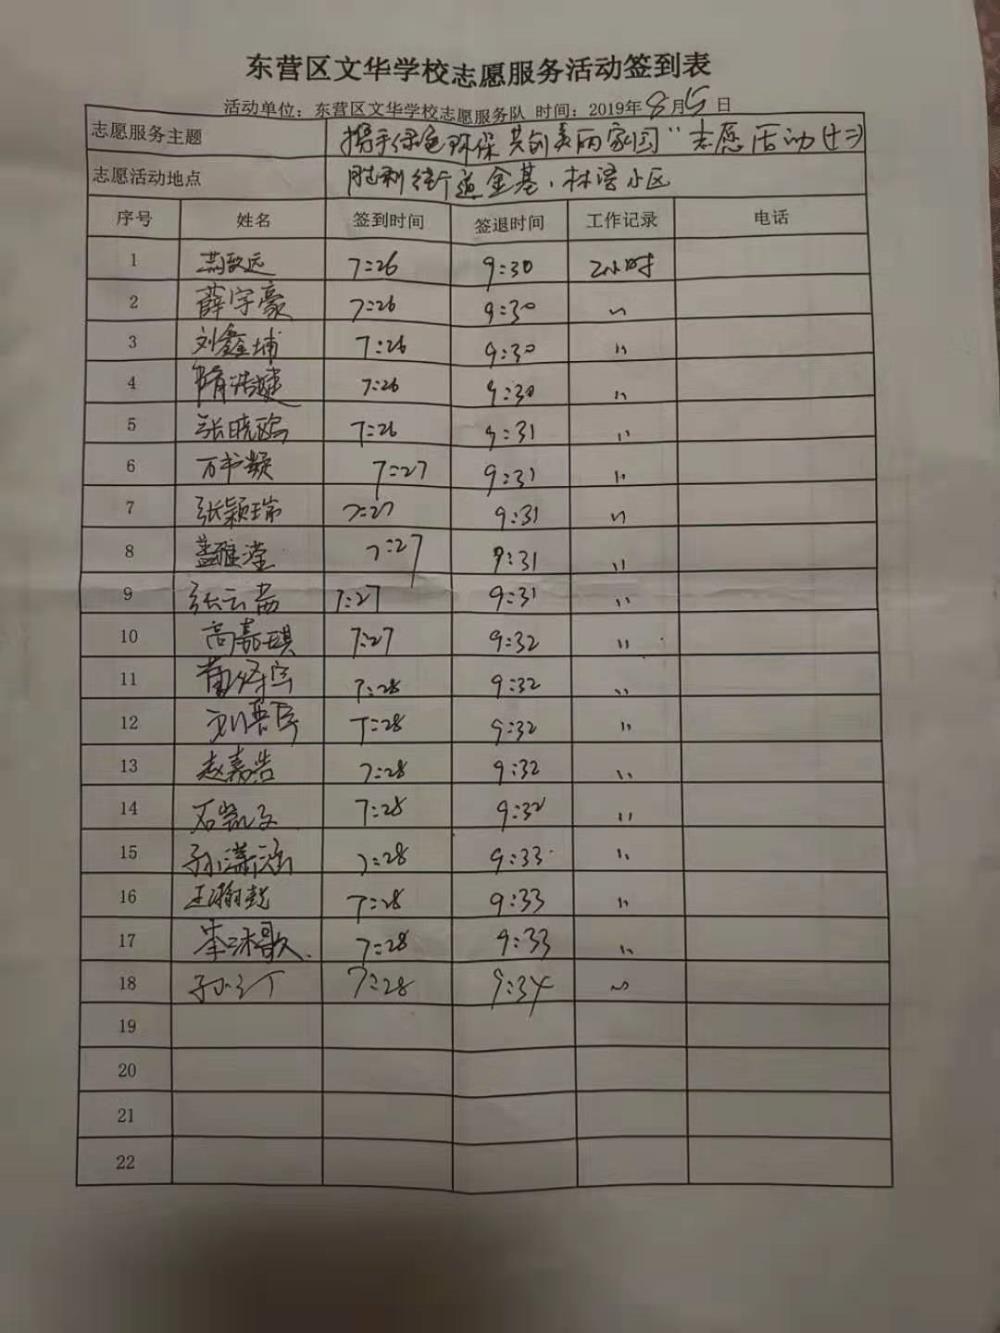 东营区文华学校志愿服务活动签到表
活动单位：东营区文华学校志愿服务队 时间：2019年8月15日
志愿服务主题 携手绿色环保 共创美丽家园"志愿活动(十二)
志愿活动地点 胜利街道金基、林 小区
序号 姓名 签到时间 签退时间 工作记录 电话
1 燕致远 7:26 9:30 2小时
2 薛宇豪 7:26 9:30 〃
3 刘鑫埔 7:26 9:30 〃
4 隋浩 7:26 9:30 〃
5 张晓鸥 7:26 9:31 〃
6 万书 7:27 9:31 〃
7 张颖瑞 7:27 9:31 〃
8 盖雅滢 7:27 9:31 〃
9 张云 7:27 9:31 〃
10 高嘉琪 7:27 9:32 〃
11 7:28 9:32 〃
12 7:28 9:32 〃
13 赵嘉浩 7:28 9:32 〃
14 石凯文 7:28 9:32 〃
15 孙潇涵 7:28 9:33 〃
16 王瀚 7:28 9:33 〃
17 李沐歌 7:28 9:33 〃
18 7:28 9:34 〃
19
20
21
22